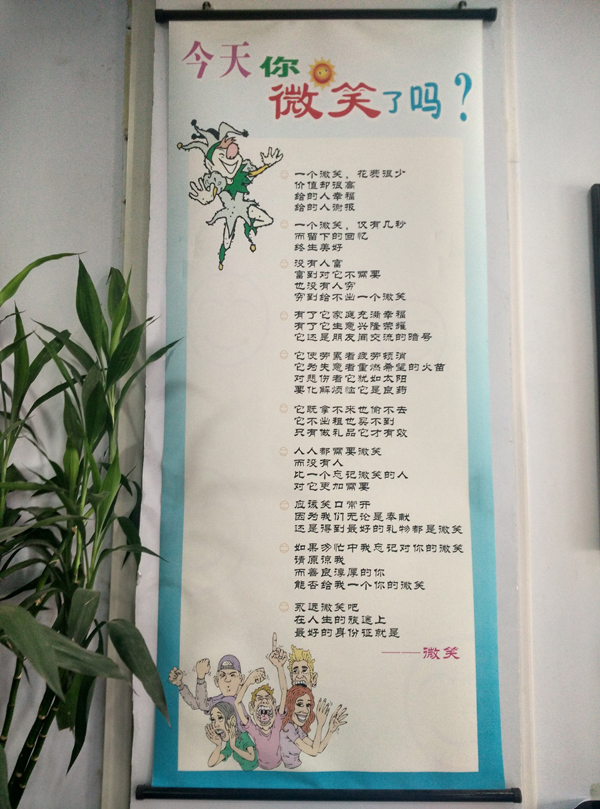 今天你
微笑了吗?
一个微笑,花费很少
价值却很高
给的人幸福
给的人谢报
一个微笑,仅有几秒
而留下的回忆
终生美好
没有人富
富到对它不需要
也没有人穷
穷到给不出一个微笑
有了它家庭充满幸福
有了它生意兴隆荣耀
它还是朋友间交流的暗号
它使劳累者疲劳顿消
它为失意者重燃希望的火苗
对悲伤者它犹如太阳
要化解烦恼它是良药
它既拿不来也偷不去
它不出租也买不到
只有做礼品它才有效
人人都需要微笑
而没有人
比一个忘记微笑的人
对它更加需要
应该笑口常开
因为我们无论是奉献
还是得到最好的礼物都是微笑
如果匆忙中我忘记对你的微笑
请原谅我
而善良淳厚的你
能否给我一个你的微笑
永远微笑吧
在人生的旅途上
最好的身份证就是
——微笑